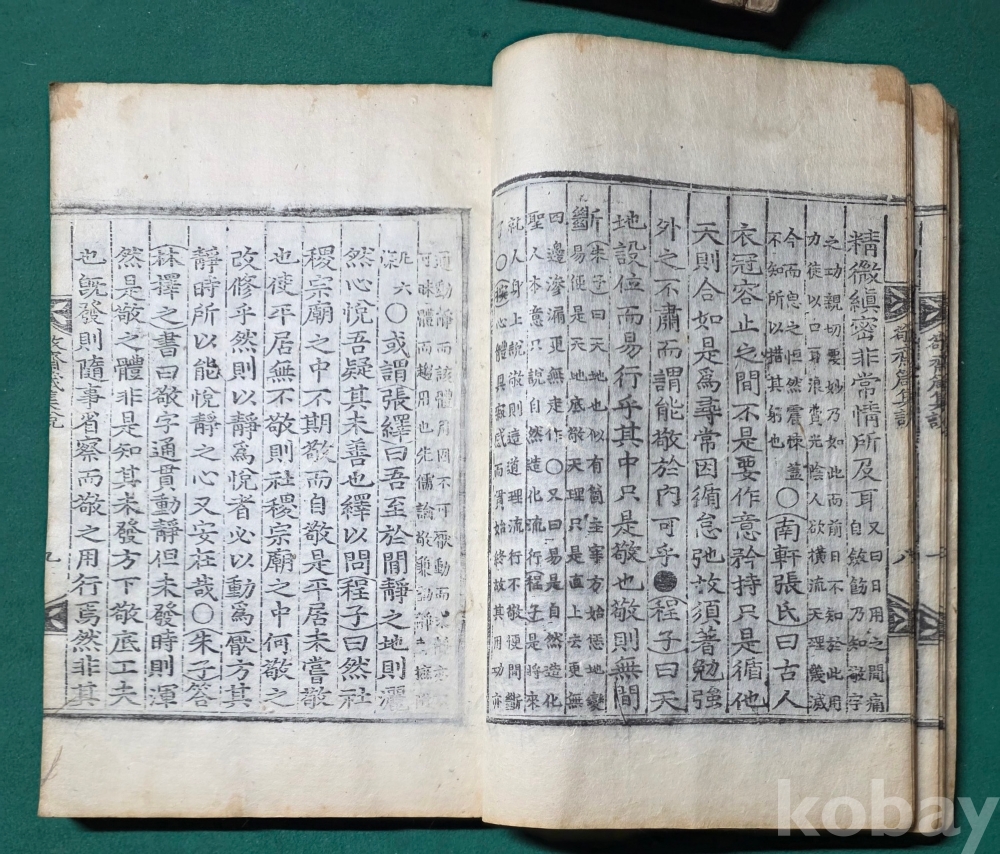 精微縝密非常情所及耳
又曰日用之間痛
自斂飭乃知敬字
之功親切要妙乃如此而前日不知於此用
力徒以口耳浪費光陰人欲橫流天理幾滅
今而思之怛然震悚蓋
不知所以措其躬也
〇南軒張氏曰古人
衣冠容止之間不是要作意矜持只是循他
天則合如是爲尋常因循怠弛故須著勉強
外之不肅而謂能敬於內可乎 程子曰天
地設位而易行乎其中只是敬也敬則無間
斷
朱子曰天地也似有箇主宰方始恁地變
易便是天地底敬天理只是直上去更無
四邊滲漏更無走作〇又曰易是自然造化
聖人本意只說自然造化流行程子是將來
就人身上說敬則這道理流行不敬便間斷
了〇心體具寂感而貫始終故其用功亦
通動靜而該體用因不可厭動而
可昧體而趨用也先儒論敬兼動靜
〇或謂張繹曰吾至於閒靜之地則灑
然心悅吾疑其未善也繹以問程子曰然社
稷宗廟之中不期敬而自敬是平居未嘗敬
也使平居無不敬則社稷宗廟之中何敬之
改修乎然則以靜爲悅者必以動爲厭方其
靜時所以能悅靜之心又安在哉〇朱子答
林擇之書曰敬字通貫動靜但未發時則渾
然是敬之體非是知其未發方下敬底工夫
也旣發則隨事省察而敬之用行焉然非其
敬齋箴集說
九
kobay